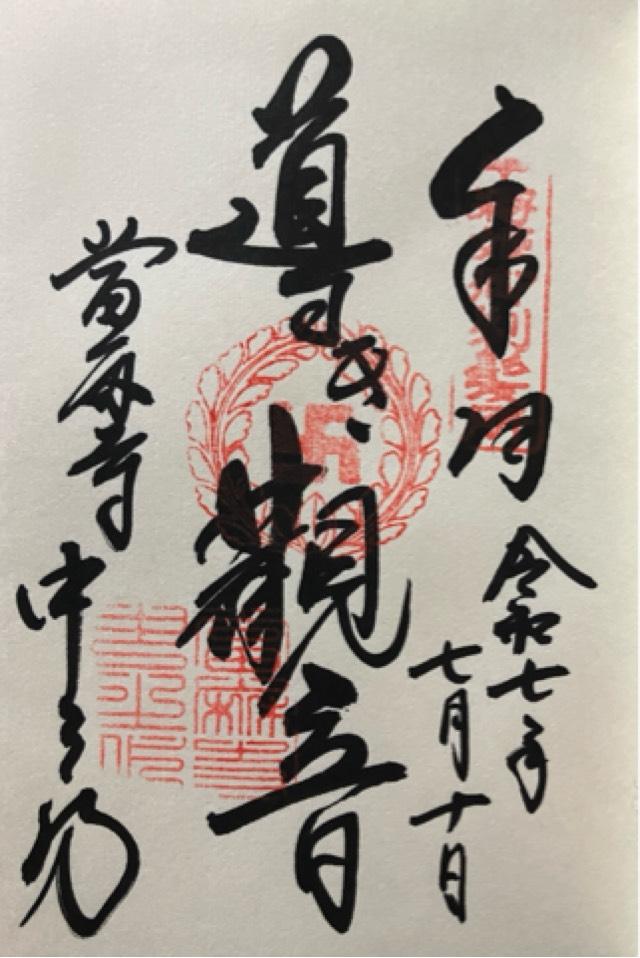 奉拝
令和七年
七月十日
導き観音
當麻寺
中之坊